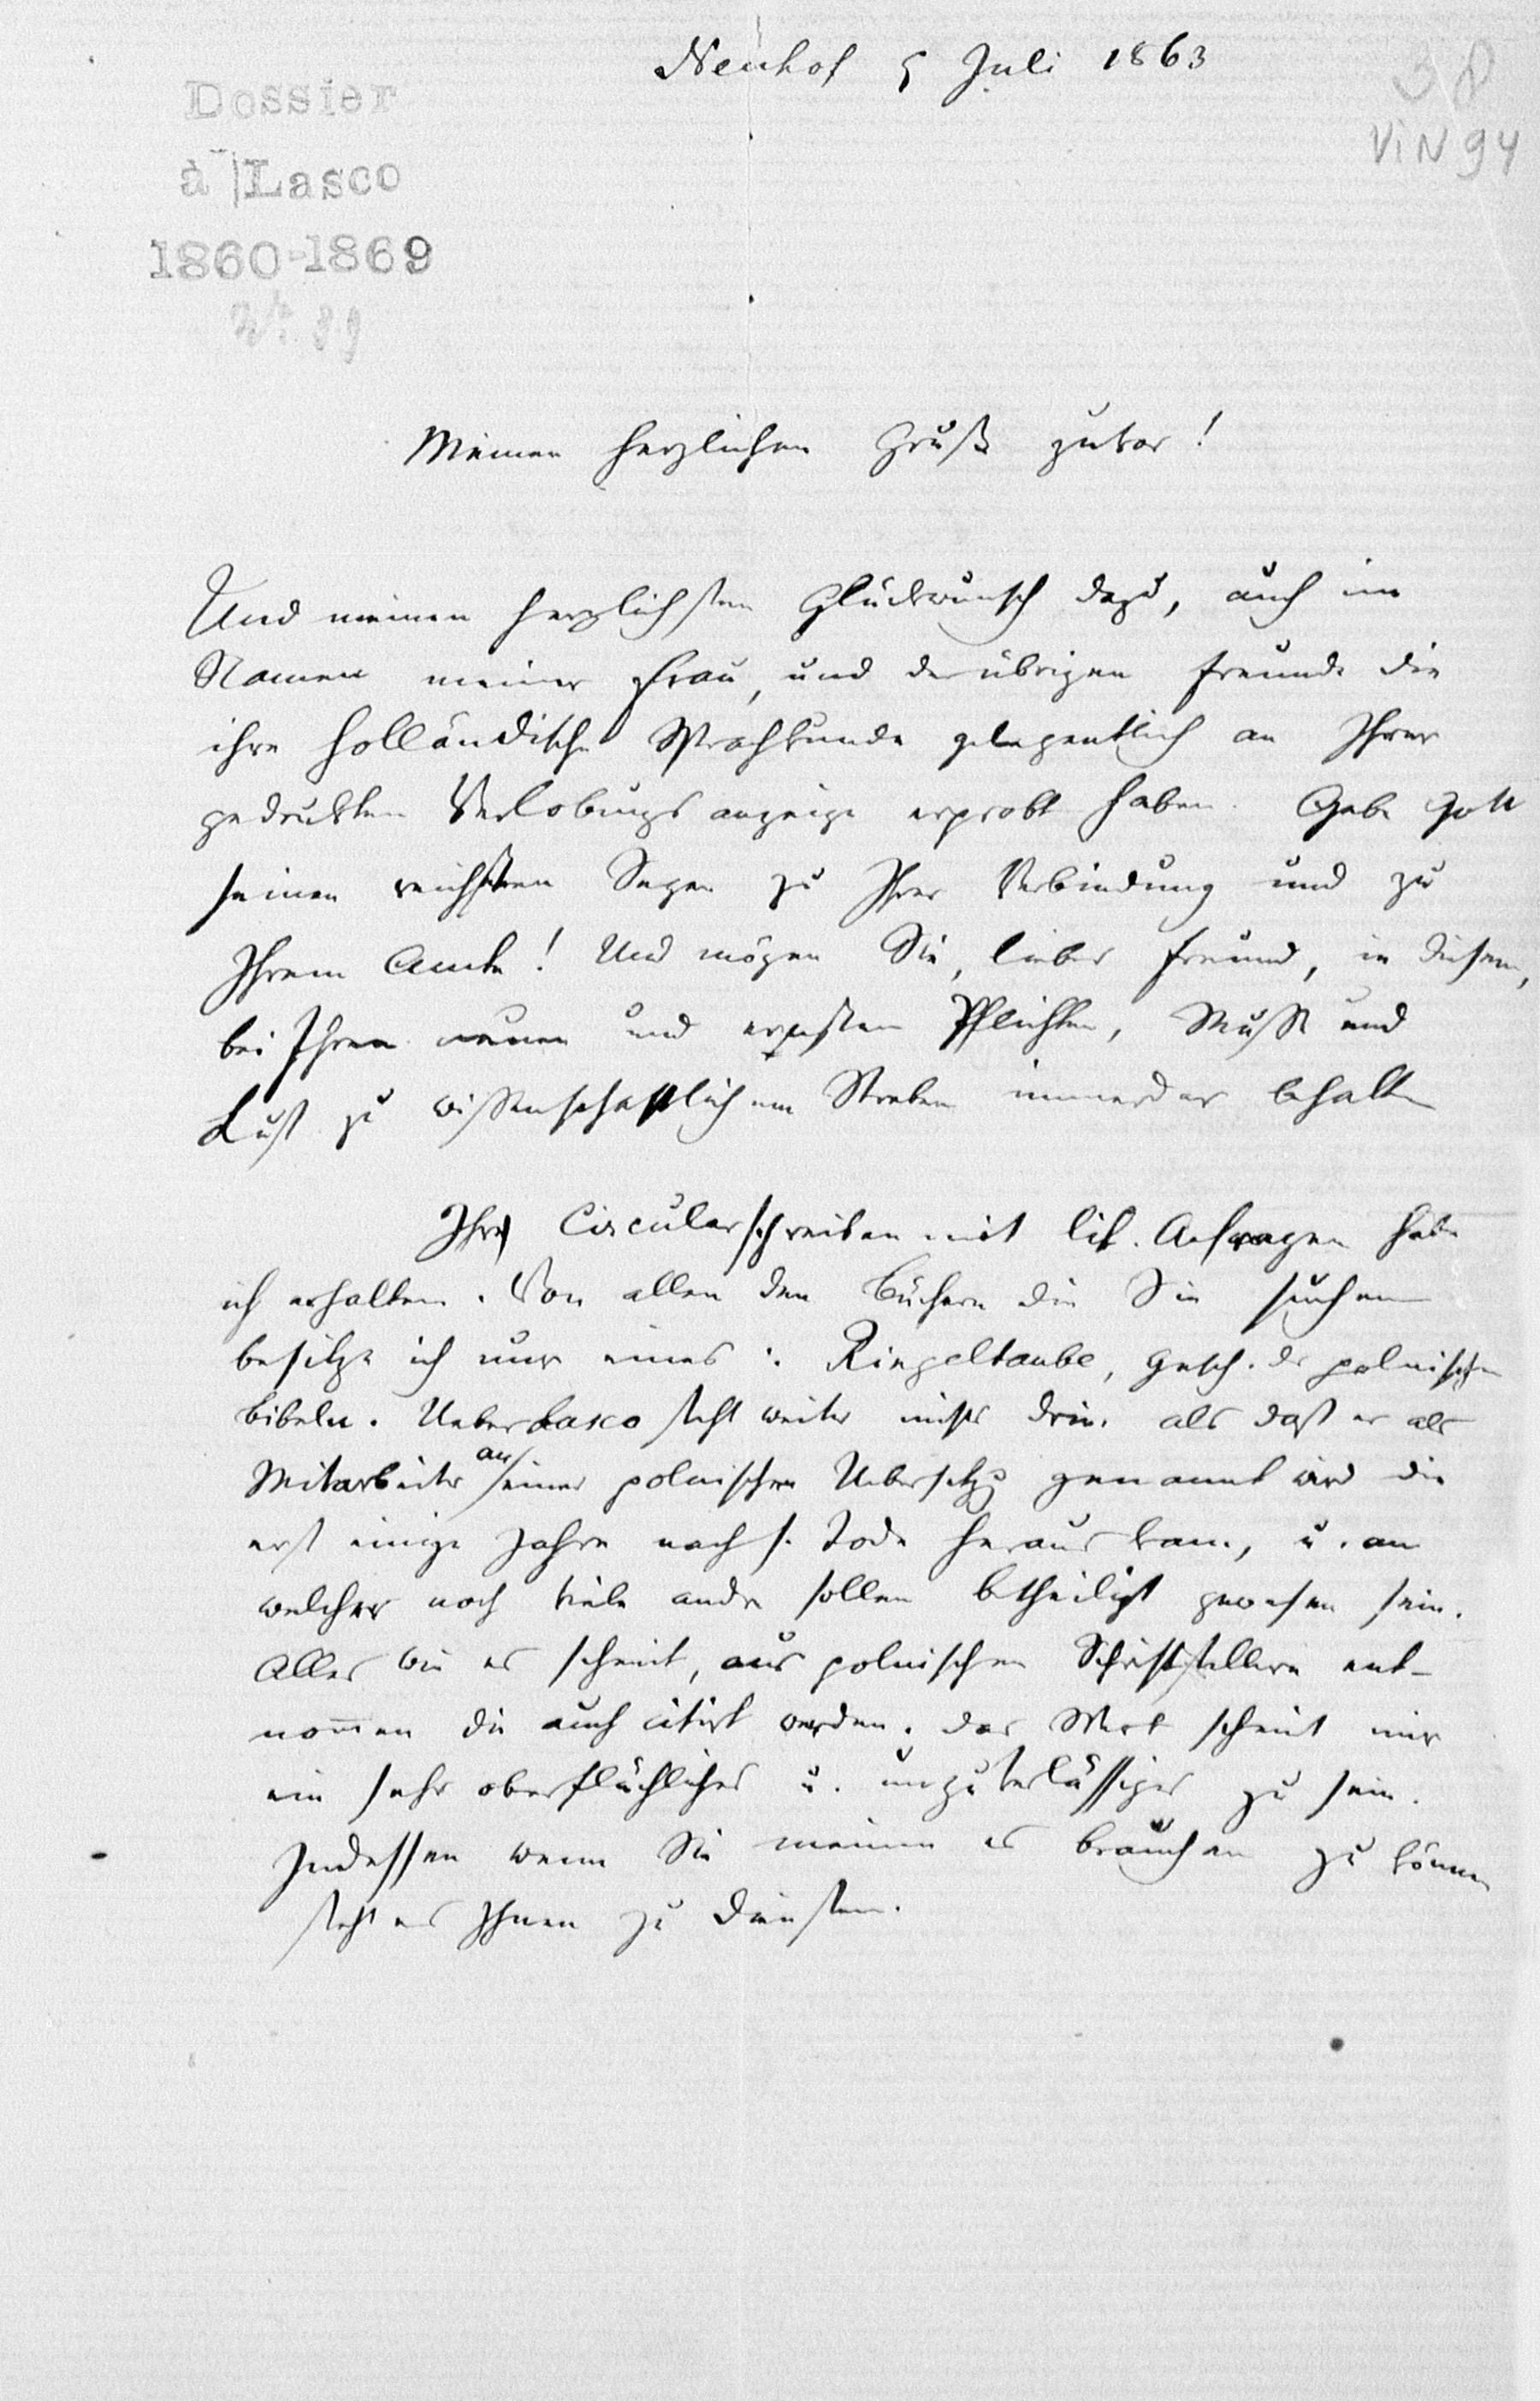 Neuhof 5 Juli 1863
38
VIN 94
Dossier
à Lasco
1860-1869
Meinen herzlichen Gruß zuvor!
Und meinen herzlichsten Glückwunsch dazu, auch im
Namen meiner Frau, und der übrigen Freunde die
ihre holländische Sprachkunde gelegentlich an Ihrer
gedruckten Verlobungsanzeige erprobt haben. Gebe Gott
seinen reichsten Segen zu Ihrer Verbindung und zu
Ihrem Amte! Und mögen Sie, lieber Freund, in diesem,
bei Ihren neuen und ernsten Pflichten, Muße und
Lust zu wissenschaftlichem Streben immerdar behalten
Ihr Circularschreiben mit lit. Anfragen habe
ich erhalten. Von allen den Büchern die Sie suchen
besitze ich nur eines: Ringeltaube, Gesch. der polnischen
Bibeln. Ueber Lasco steht weiter nichts drin. als daß er als
Mitarbeiter an einer polnischen Uebersetzg genannt wird die
erst einige Jahre nach s. Tode heraus kam, u. an
welcher noch viele andre sollen betheiligt gewesen sein.
Alles wie es scheint, aus polnischen Schriftstellern ent-
nommen die auch citirt werden. Das Werk scheint mir
ein sehr oberflächliches u. unzuverlässiges zu sein.
Indessen wenn Sie meinen es brauchen zu können
steht es Ihnen zu Diensten.